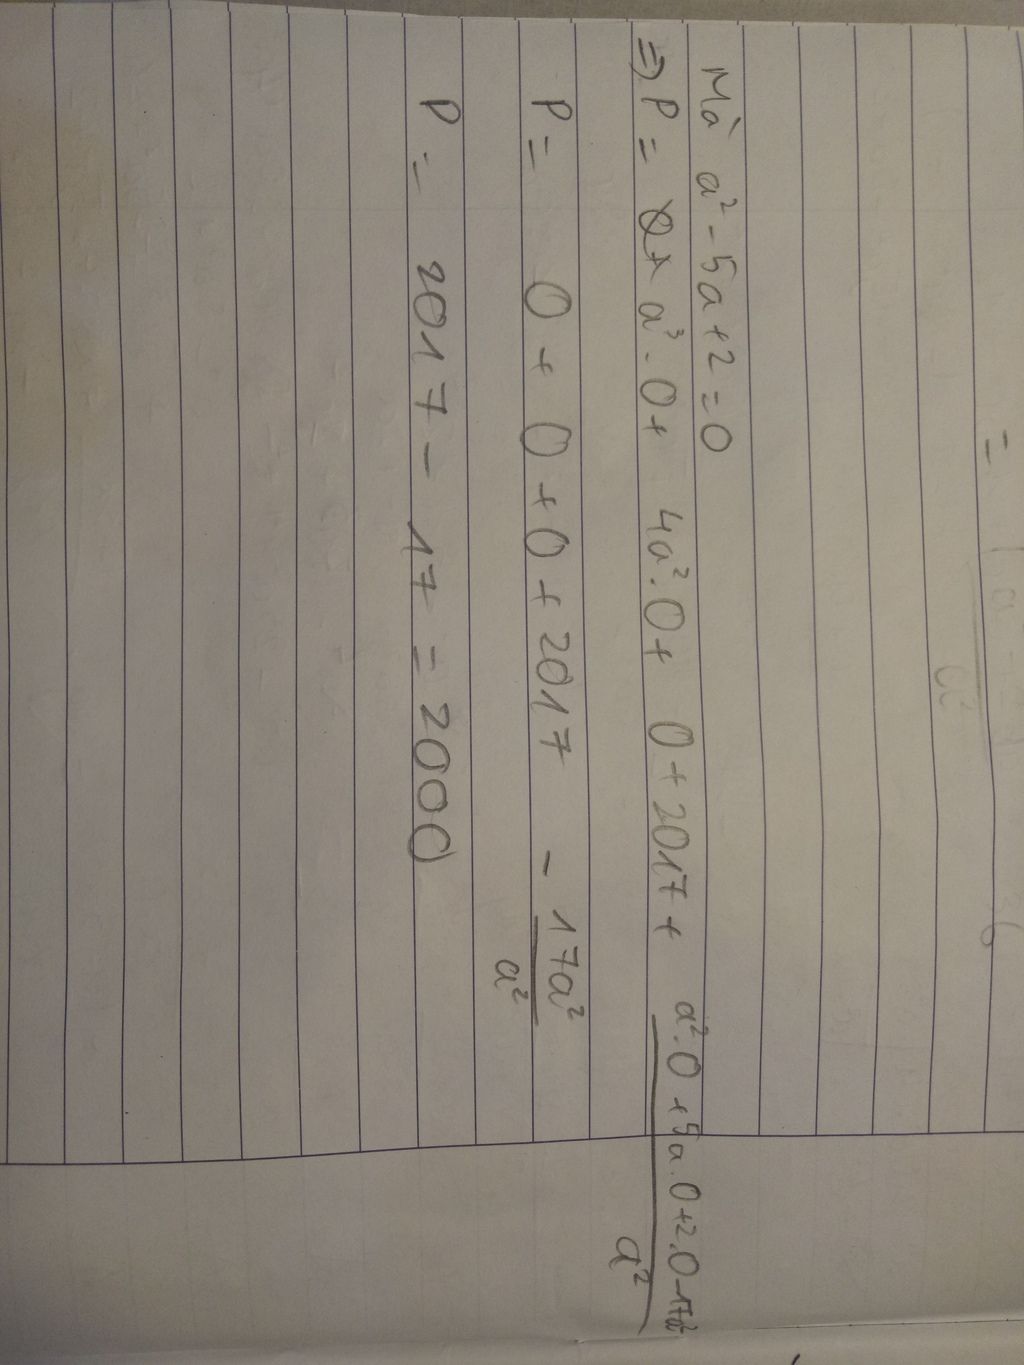 Mà a² - 5a + 2 = 0
=> P = a³ . 0 + 4a² . 0 + 0 + 2017 + \frac{a² . 0 + 5a . 0 + 2 . 0 - 17a²}{a²}
P = 0 + 0 + 0 + 2017 - \frac{17a²}{a²}
P = 2017 - 17 = 2000